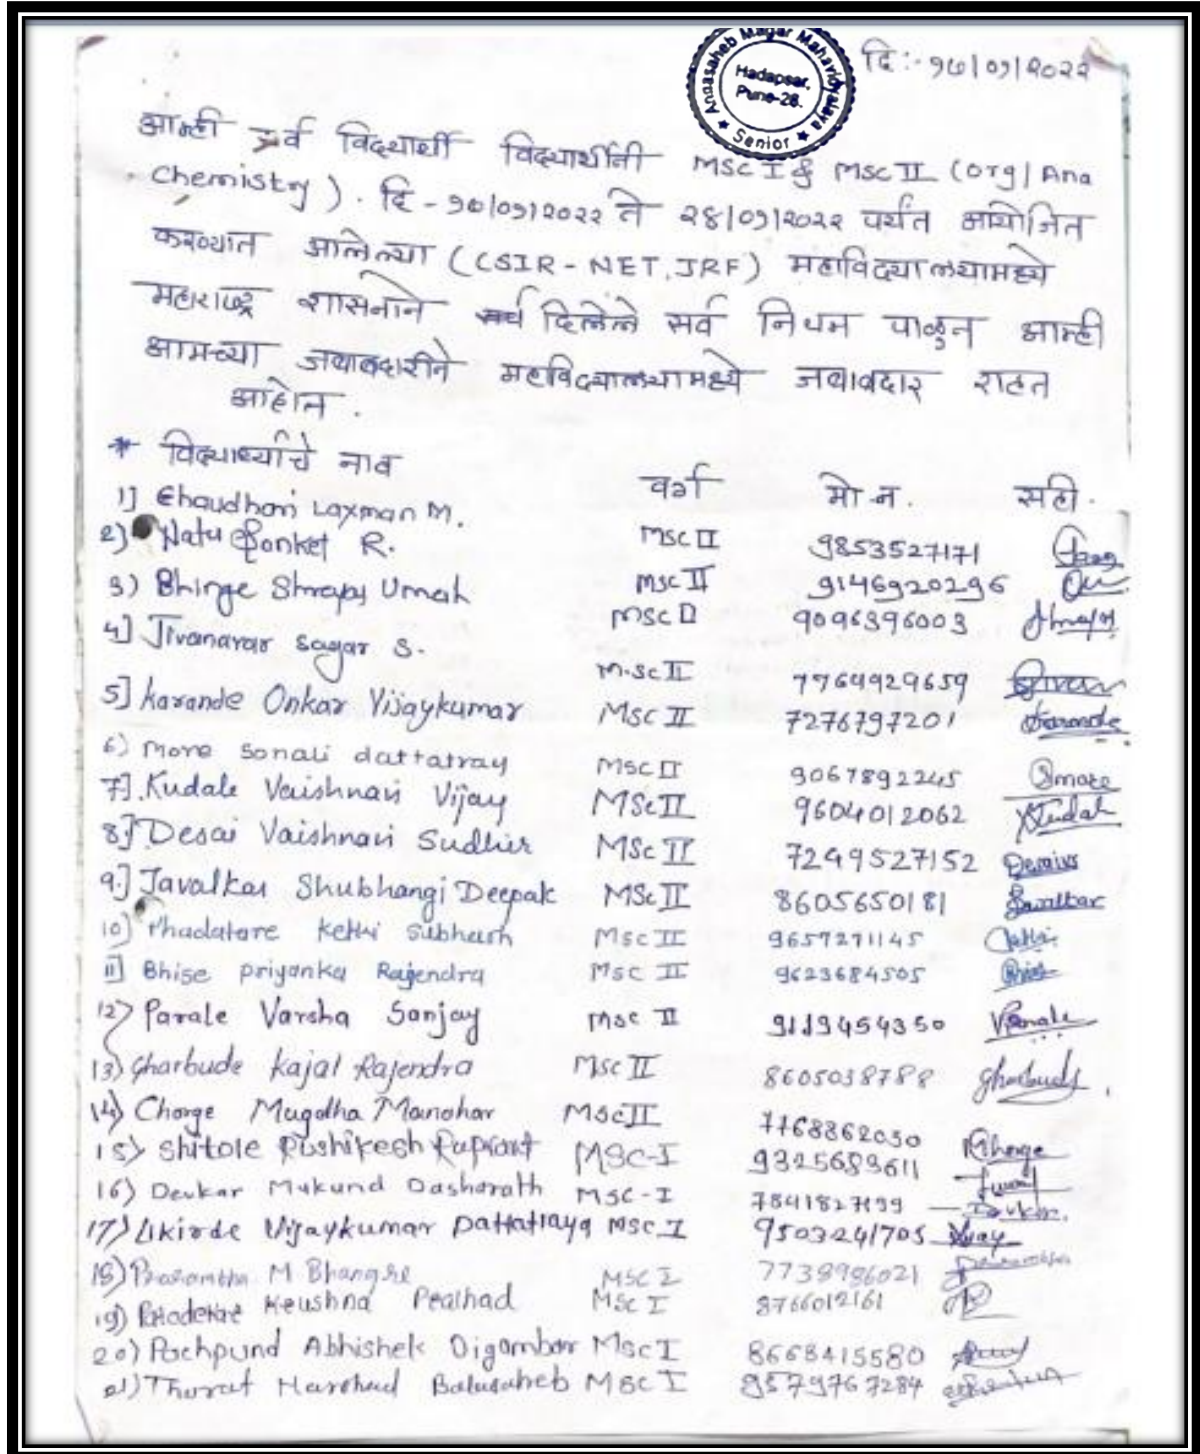 Annasaheb Magar Mahavidyalaya
Hadapsar,
Pune-28.
★ Senior ★
दि :- १७/०१/२०२२
आम्ही सर्व विद्यार्थी विद्यार्थीनी MSc I & MSc II (Org/Ana
Chemistry). दि - १७/०१/२०२२ ते २४/०१/२०२२ पर्यंत आयोजित
करण्यात आलेल्या (CSIR-NET, JRF) महाविद्यालयामध्ये
महाराष्ट्र शासनाने दिलेले सर्व नियम पाळुन आम्ही
आमच्या जबाबदारीने महाविद्यालयामध्ये जबाबदार राहत
आहोत.
* विद्यार्थ्यांचे नाव वर्ग मो.न. सही.
1] Chaudhari Laxman M. MSc II 9853527171
2) Natu Sanket R. MSc II 9146920296
3) Bhinge Umesh MSc II 9096396003
4] Jivanavar Sagar S. M.sc II 7764929659
5] Karande Onkar Vijaykumar MSc II 7276797201 Karande
6) More Sonali dattatray MSC II 9067892245 Smore
7]. Kudale Vaishnavi Vijay MSc II 9604012062 Kudale
8] Desai Vaishnavi Sudhir MSc II 7249527152 Desaivs
9.] Javalkar Shubhangi Deepak MSc II 8605650181 Javalkar
10) Phadatare Subhash MSC II 9657271145
11] Bhise priyanka Rajendra MSC II 9623684505 Bhise
12) Parale Varsha Sanjay MSC II 9119454350 VParale
13) Gharbude Kajal Rajendra MSc II 8605038788 Gharbude
14) Chorge Mugdha Manohar MSc II 7768862050 MChorge
15) Shitole Rushikesh MSC-I 9325683611
16) Devkar Mukund Dasharath MSC-I 7841827199 Devkar.
17) Likirde Vijaykumar Dattatraya MSC I 9503241705 Vijay
18) M Bhangre MSC I 7738986021
19) MSC I 8766012161
20) Pachpund Abhishek Digambar MSc I 8668415580
21) Thorat Harshad Balasaheb MSC I 9579767284